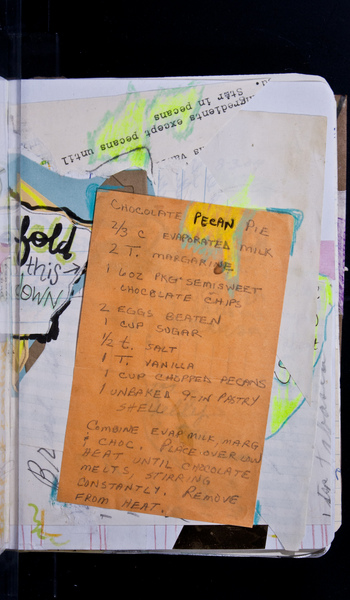 Star in pecans
ingredients except pecans until
fold
this
OWN
CHOCOLATE PECAN PIE
2/3 C EVAPORATED MILK
2 T. MARGARINE
1 6OZ PKG SEMISWEET
CHOCOLATE CHIPS
2 EGGS BEATEN
1 CUP SUGAR
1/2 t. SALT
1 T. VANILLA
1 CUP CHOPPED PECANS
1 UNBAKED 9-IN PASTRY
SHELL
COMBINE EVAP MILK, MARG
& CHOC. PLACE OVER LOW
HEAT UNTIL CHOCOLATE
MELTS, STIRRING
CONSTANTLY. REMOVE
FROM HEAT.